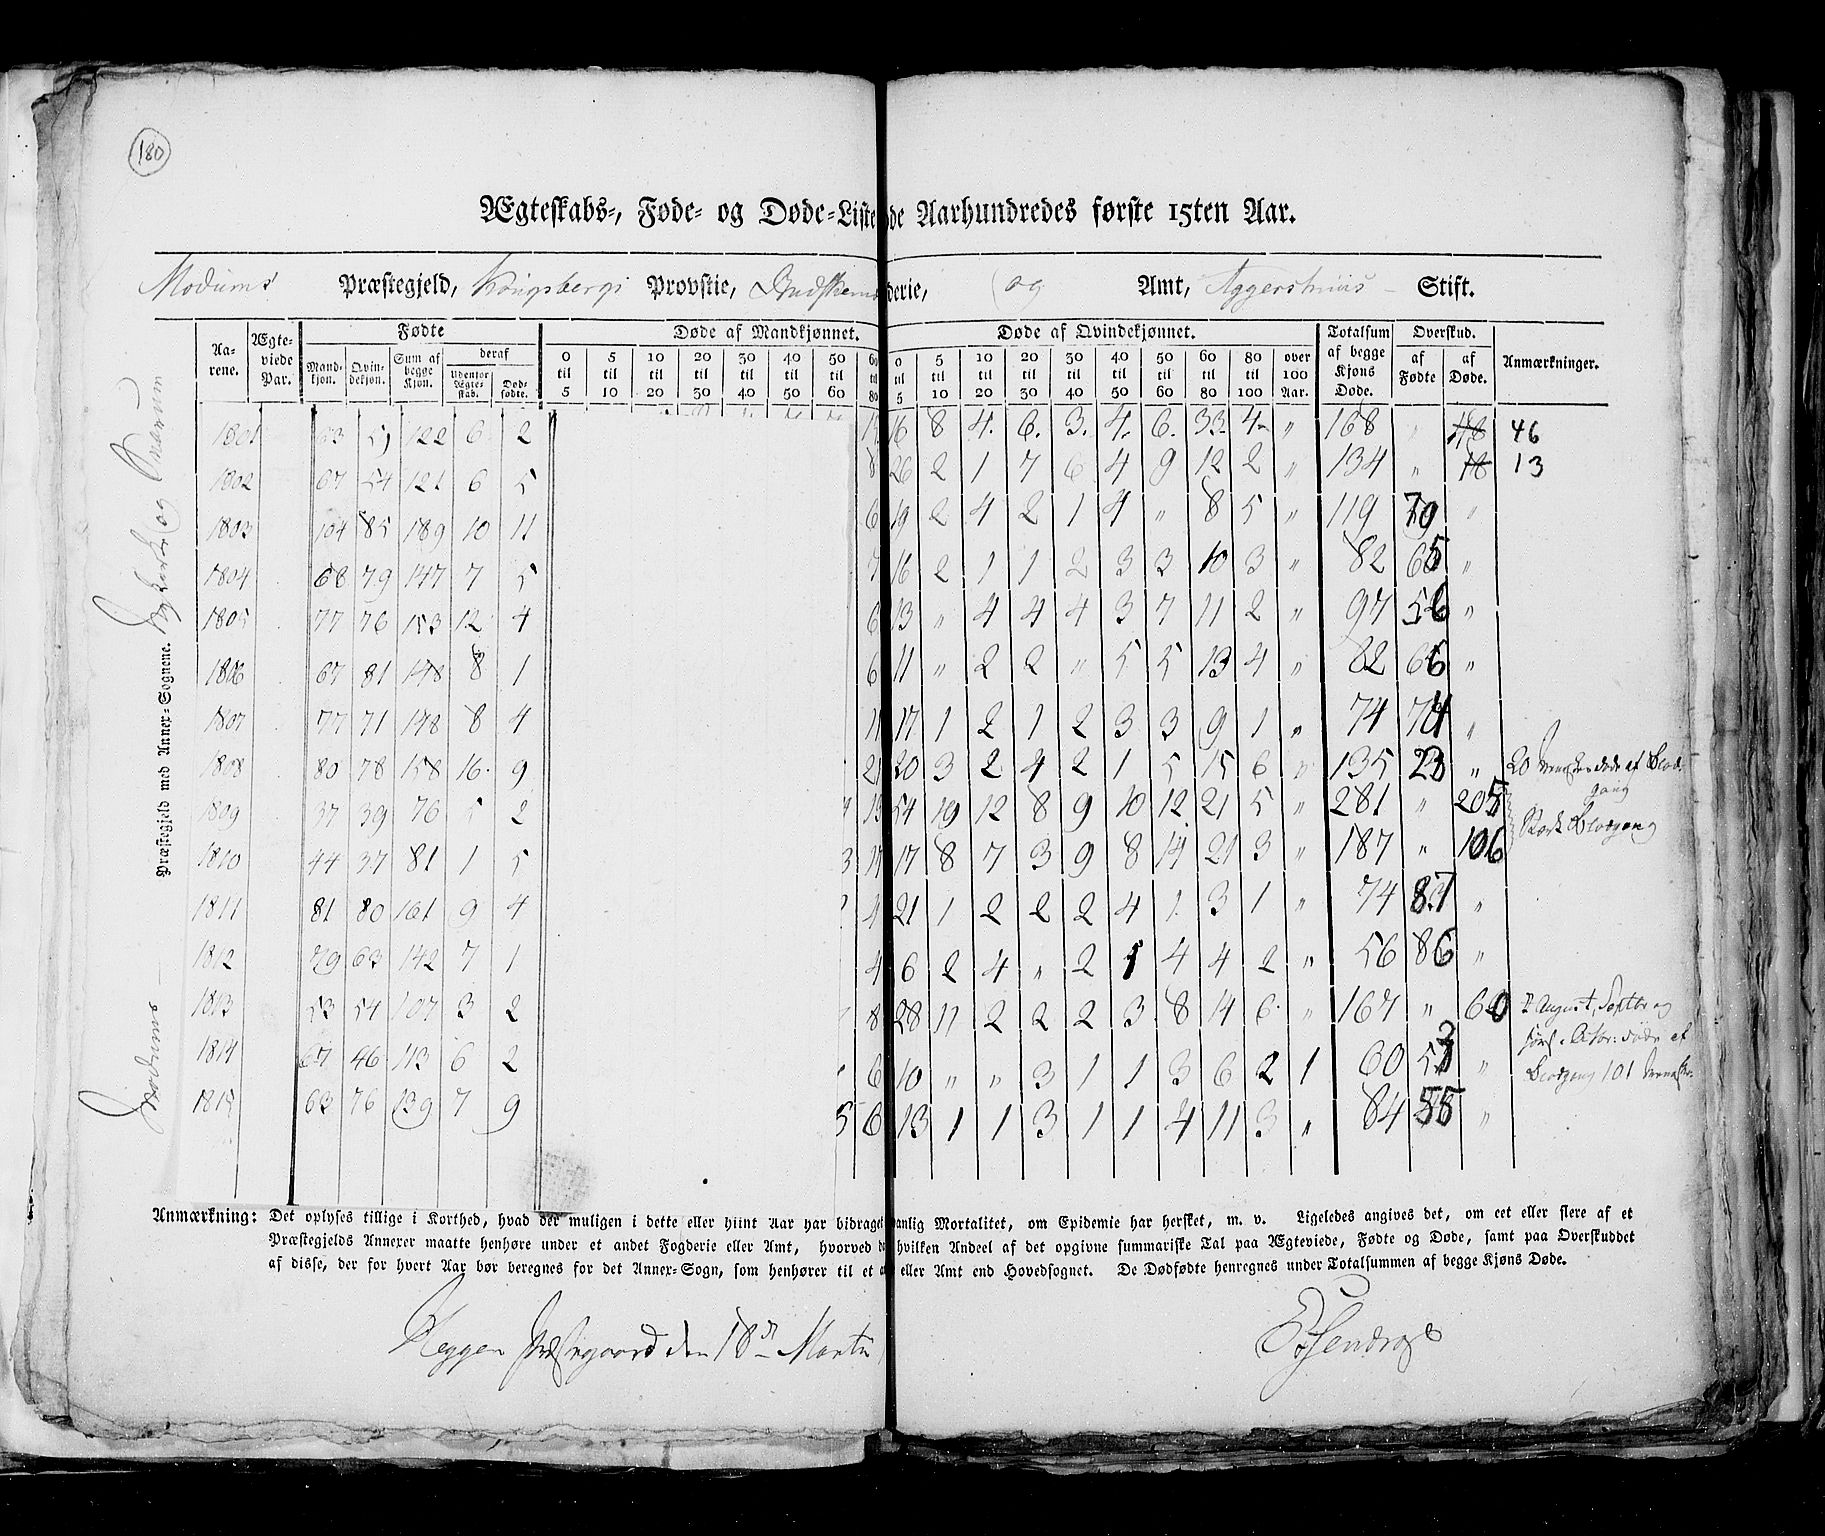 180
Ægteskabs-, Føde- og Døde-Liste de Aarhundredes første 15ten Aar.
Modums Præstegjeld, Kongsbergs Provstie, derie, og Amt, Aggershuus Stift.
Aarene. Ægteviede Par. Fødte Døde af Mandkjønnet. Døde af Qvindekjønnet. Totalsum af begge Kjøns Døde. Overskud. Anmærkninger.
Mandkjøn. Qvindekjøn. Sum af begge Kjøn. deraf udentor Ægteskab. Dødfødte. 0 til 5 5 til 10 10 til 20 20 til 30 30 til 40 40 til 50 50 til 60 60 til 80 0 til 5 5 til 10 10 til 20 20 til 30 30 til 40 40 til 50 50 til 60 60 til 80 80 til 100 over 100 Aar. af Fødte af Døde.
1801 122 6 2 16 8 4 6 3 4 6 33 4 " 168 " 48 46
1802 67 54 121 6 5 8 26 2 1 7 6 4 9 12 2 " 134 " 18 13
1803 104 85 189 10 11 6 19 2 4 2 1 4 " 8 5 " 119 70 "
1804 68 79 147 7 5 7 16 2 1 1 2 3 3 10 3 " 82 65 "
1805 77 76 153 12 4 6 13 " 4 4 4 3 7 11 2 " 97 56 "
1806 67 81 148 8 1 6 11 " 2 2 " 5 5 13 4 " 82 66 "
1807 77 71 148 8 4 11 17 1 2 1 2 3 3 9 1 " 74 74 "
1808 80 78 158 16 9 21 20 3 2 4 2 1 5 15 6 " 135 23 " 20 Mennesker døde af Blodgang
1809 37 39 76 5 2 13 54 19 12 8 9 10 12 21 5 " 281 " 205
1810 44 37 81 1 5 3 17 17 8 7 3 9 8 14 21 3 " 187 " 106 Stærk Blodgang
1811 81 80 161 9 4 4 21 1 2 2 2 4 1 3 1 " 74 87 "
1812 79 63 142 7 1 4 6 2 4 " 2 5 4 4 2 " 56 86 "
1813 53 54 107 3 2 8 28 11 2 2 2 3 8 14 6 " 167 " 60 I August, Septbr og
1814 67 46 113 6 2 6 10 " " 3 1 1 3 6 2 1 60 53 " først. Octbr: døde af
Blodgang 101 Mennesk:
1815 63 76 139 7 9 5 6 13 1 1 3 1 1 4 11 3 " 84 55 "
Præstegjeld med Annex-Sognene. Nykirke og Snarum
Modums
Anmærkning: Det oplyses tillige i Korthed, hvad der muligen i dette eller hiint Aar har bidraget anlig Mortalitet, om Epidemie har hersket, m. v. Ligeledes angives det, om eet eller flere af et
Præstegjelds Annexer maatte henhøre under et andet Fogderie eller Amt, hvorved hvilken Andeel af det opgivne summariske Tal paa Ægteviede, Fødte og Døde, samt paa Overskuddet
af disse, der for hvert Aar bør beregnes for det Annex-Sogn, som henhører til et a eller Amt end Hovedsognet. De Dødfødte henregnes under Totalsummen af begge Kjøns Døde.
Heggen Præstegaard den 18de Martii